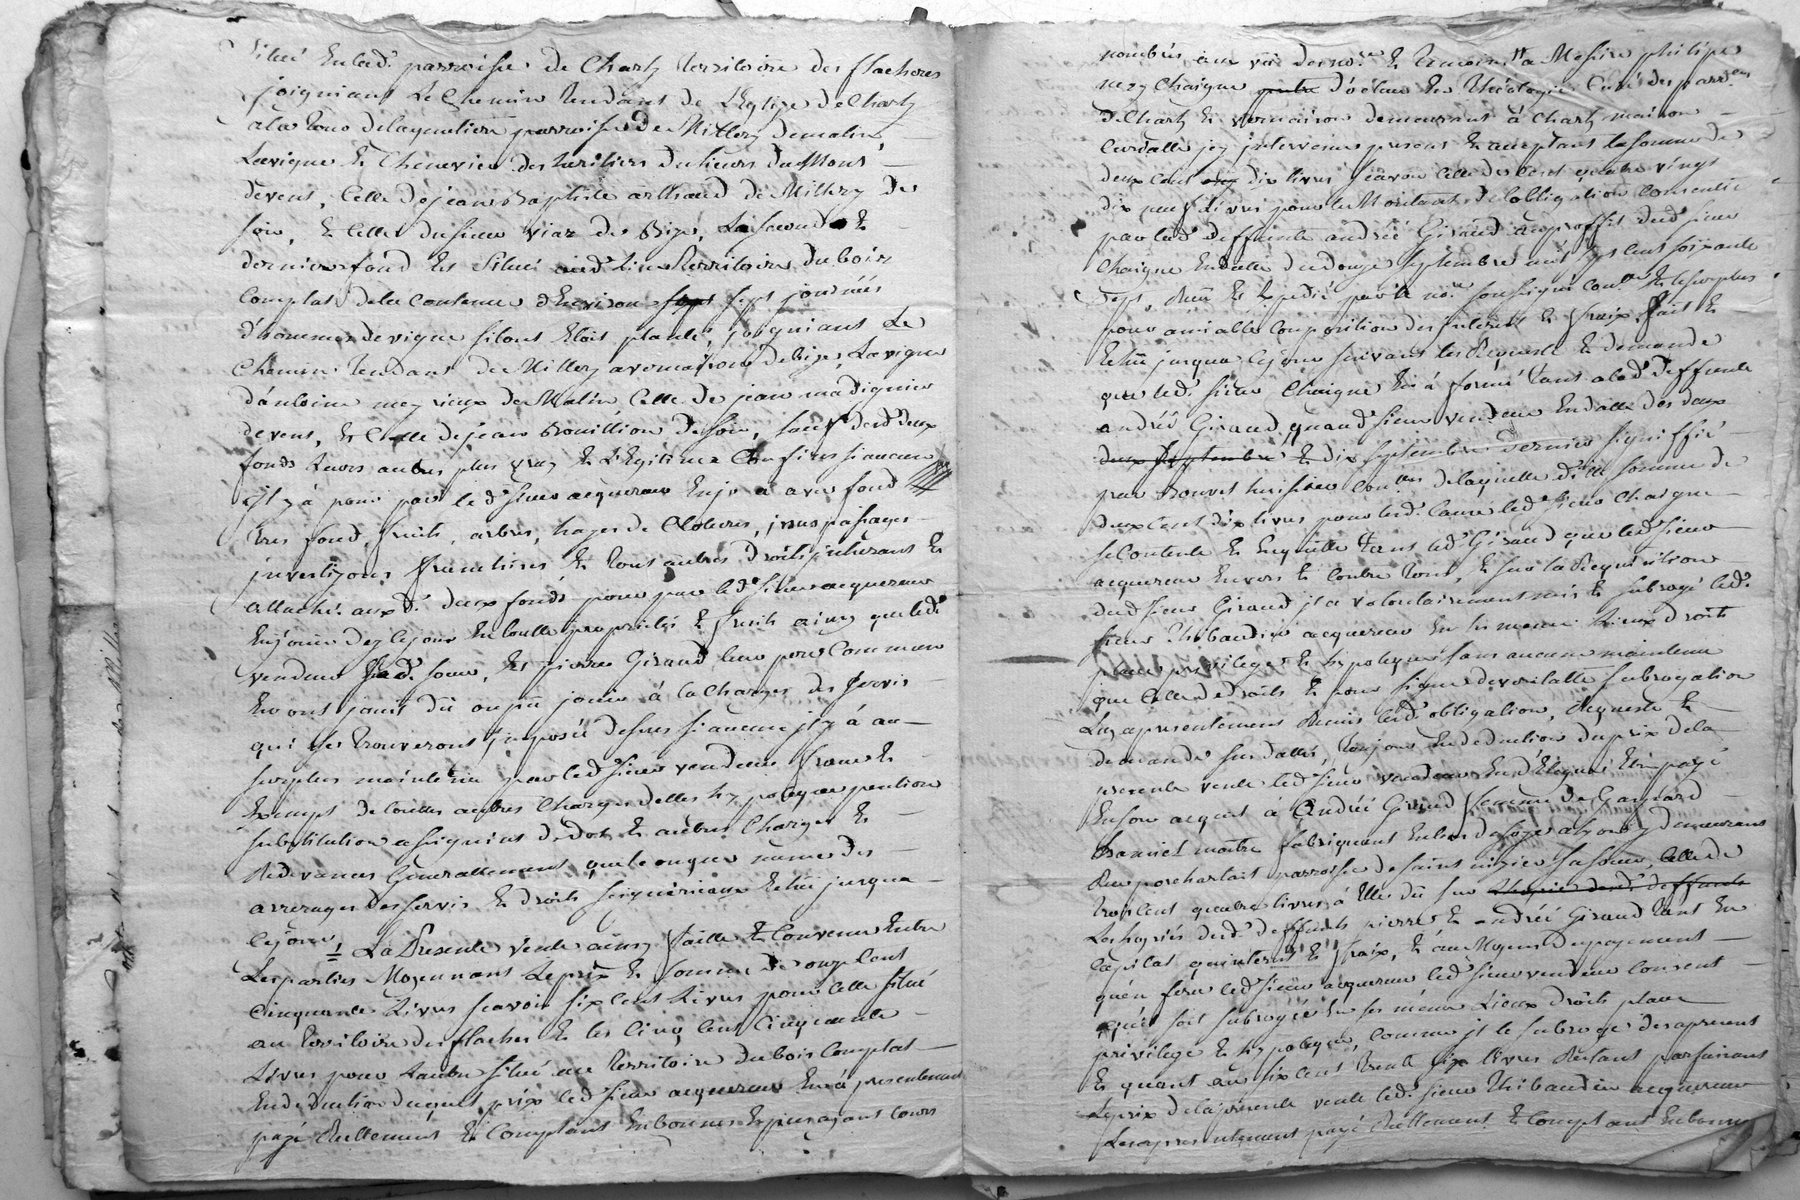 Situé en lad.e parroisse de Charly territoire des flacheres
joigniant Le Chemin tendant de L'Eglize de Charly
a la tour de la parroisse de Millery de matin
La vigne et Chenevier des heritiers du sieurs Dumont
de vent, Celle de jean Baptiste arthaud de Millery de
soir, et Celle du sieur viaz de Bize, La second et
dernier fond est Situé aud. lieu territoire du bois
Complat de la Contenue d'Environ sept journées
d'hommes de vigne selont Elois planté, joigniant Le
Chemin tendant de Millery a vernaison de Bize, La vigne
d'antoine meyrieux de Matin Celle de jean madignier
de vent, et Celle de jean Bouillion de soir, sauf desd. deux
fonds leurs autres plus vray et L'Egitime Confins si aucun
il y à pour par led. sieur acquereur Enjo a avec fond
tres fond, fruits, arbres, hayes de Clotures, issus passages
investizons franchises et tout autres droits inherant et
attaché aux d. deux fonds pour par led. sieur acquereur
Enjouir dez Ce jour En toutte proprieté et fruits ainsy que led.
vendeur Lad. soeur, et pierre Giraud leur pere Commun
En ont jouit dû ou pû jouir à la Charges des servis
qui ses trouveront imposée dessus si aucune il y à au
surplus maintenu par led. sieur vendeur franc et
Exempt de touttes autres Charges dettes hypoteque pention
substitution assigniat de dot et autres Charges et
Redevances Generallement quelconques meme des
arrerages des servis et droits seignieuriaux Echû jusqua
Ce jour. La Presente vente ainsy faitte et Convenu Entre
Les parties Moyennant Le prix et somme de onze Cent
Cinquante Livres scavoir six Cent Livres pour Celle situé
au territoire des flaches et les Cinq Cent Cinquante
Livres pour Lautre situé au territoire du bois Complat
En deduction duquel prix led. sieur acquereur En a presentement
payé Reellement et Comptant En bonnes Especes ayant Cours
nombrés aux vû des no.re et temoins a Messire philipe
Chaigne docteur En Theologie Curé des parr.es
de Charly et vernaison demeurant à Charly maison
Curialle jcy intervenus present et acceptant la somme de
deux Cent dix livres scavoir Celle de Cent quatre vingt
dix neuf Livres pour le Montant de lobligation Consentie
par lad. deffunte andrée Giraud au proffit dud. sieur
Chaigne En datte du douze septembre mil sept Cent soixante
sept, Reçu et Expedié par le no.re soussigné Con.er et le surplus
pour amiable Composition des interest et fraix fait et
Echû jusqua Ce jour suivant les Requeste et demande
que led. sieur Chaigne En à formé tant a lad. deffunte
andrée Giraud quaud. sieur vendeur En datte des deux
deux septembre et dix septembre dernier signiffié
par Bouvet huissier de laquelle ditte somme de
deux Cent dix livres pour lesd. Causes led. sieur Chaigne
se Contente et En quitte tant led. Giraud que led. sieur
acquereur Envers et Contre tous, et sur la Requisition
dud. sieur Giraud jl a volontairement mis et subrogé led.
sieur Thibaudier acquereur En ses meme Lieux droits
place privilege et hypoteque sans aucune maintenue
que Celle de droits et pour signe de veritable subrogation
Luy a presentement Remis lesd. obligation, Requeste et
demande sus dattés, toujours En deduction du prix de la
presente vente led. sieur vendeur En délegue Etre payé
En son acquit à andrée Giraud femme de Gaspard
maitre fabriquant En bas de soye a Lyon y demeurant
Rue poncharlait parroisse de saint nizier sa soeur, Celle de
trois Cent quatre livres à Elle dû sur Lhoirie desd. deffunts
Les hoiries desd. deffunts pierre et andrée Giraud tant En
Capital quinterest et fraix, et au Moyen du payement
quen fera led. sieur acquereur led. sieur vendeur Consent
quil soit subrogée En ses même Lieux droits place
privilege et hypoteque, comme jl le subroge des apresent
Et quant au six Cent trente six livres Restant parfaisant
Le prix de la presente vente led. sieur Thibaudier acquereur
Les a presentement payé Reellement et Comptant En bonnes